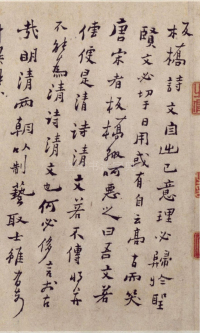 板橋詩文自出己意理必歸於聖
賢文必切于日用或有自云高古而几
唐宋者板橋輒呵惡之曰吾文若
傳便是清詩清文若不傳將并
不能為清詩清文也何必侈言前古
哉明清兩朝以制藝取士雖有奇